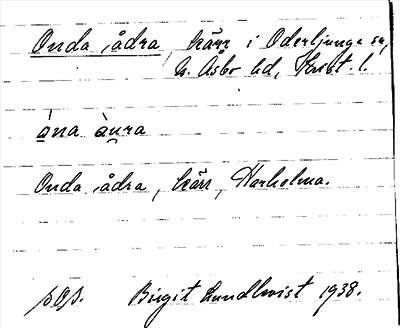 Onda ådra, kärr i Oderljunga sn,
N. Åsbo hd, Krist. l.
àna àura
Onda ådra, kärr, Harholma.
Birgit Lundkvist 1938.